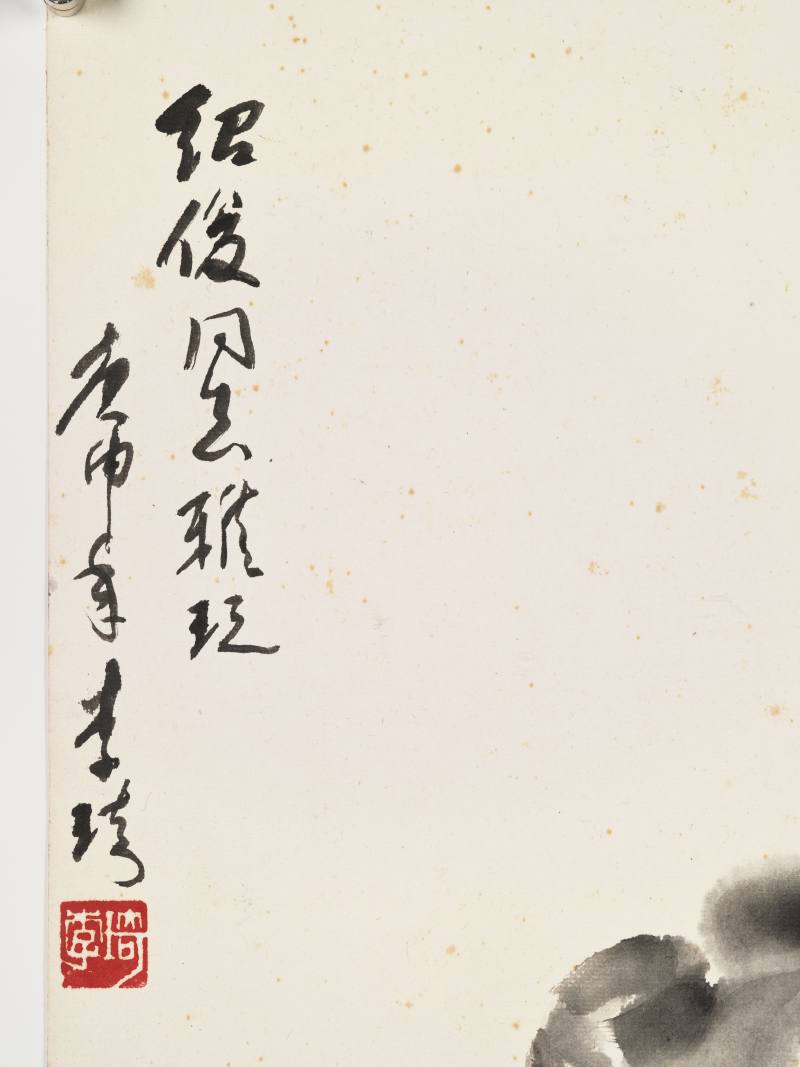 绍俊同志雅玩
庚申年李琦
李琦